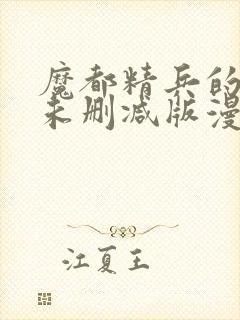 魔都精兵的
未删减版漫
江夏王